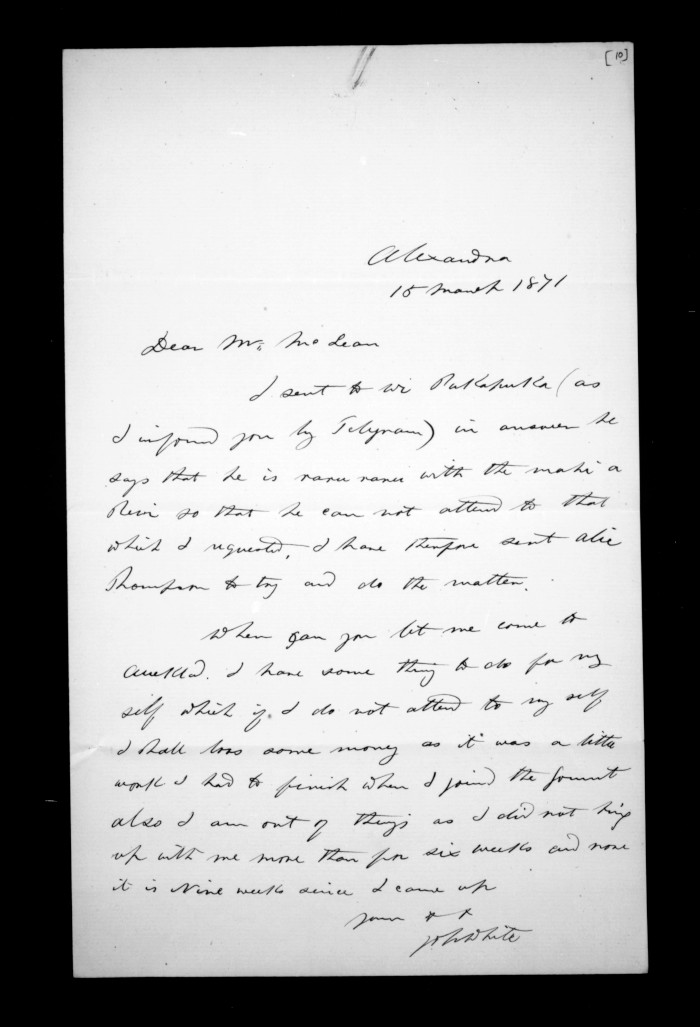 [10]
Alexandra
15 March 1871
Dear Mr. McLean
I sent to Wi Pukapuka (as
I infomd you by Telegram) in answer he
says that he is raru raru with the mahi a
Rewi so that he can not attend to that
which I requested, I have therefore sent
Thompson to try and do the matter.
When can you let me come to
Auckld. I have some thing to do for my
self which if I do not attend to my self
I shall loss some money as it was a little
work I had to finish when I joind the Govmnt
also I am out of things as I did not bring
up with me more than for six weeks and now
it is Nine weeks since I came up
yours
John White